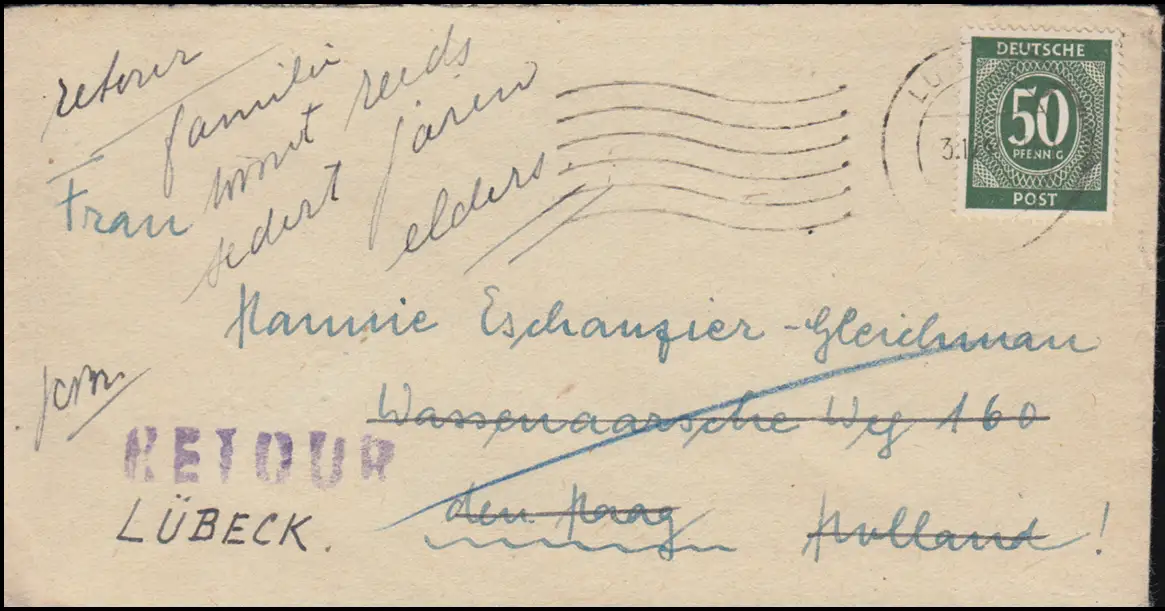 retour
familie
woont reeds
sedert jaren
elders.
DEUTSCHE
50
PFENNIG
POST
LÜ
3.1
Frau
Hannie Eschauzier-Gleichman
Wassenaarsche Weg 160
den Haag Holland!
RETOUR
LÜBECK.